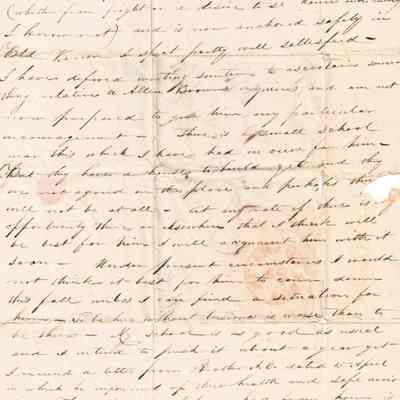 (whether from fright or a desire to see
I know not) and is now anchored safely in
Old Vernon I expect pretty well sattisfied -
I have defered writing sometime to ascertain some
thing relative to Allen Browns enquires and am not
now prepared to give him any particular
encouragement - There is a small school
near this which I have had in view for him -
But they have a house to build yet and they
are not agreed on the place and perhaps this
will not be at all - at any rate if there is any
oppertunity there or elsewhere that I think will
be best for him I will acquaint him with it
soon - Under present circumstances I would
not think it best for him to come down
this fall unless I can find a situation for
him - To be here without business is worse than to
be there - My school is as good as usual
and I intend to push it about a year yet
I received a letter from Brother dated April
in which he informed of their health and safe